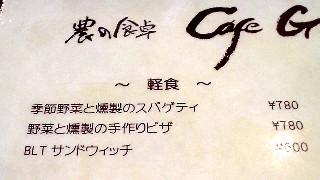 農の食卓 Cafe G
～ 軽食 ～
季節野菜と燻製のスパゲティ ¥780
野菜と燻製の手作りピザ ¥780
BLTサンドウィッチ ¥600